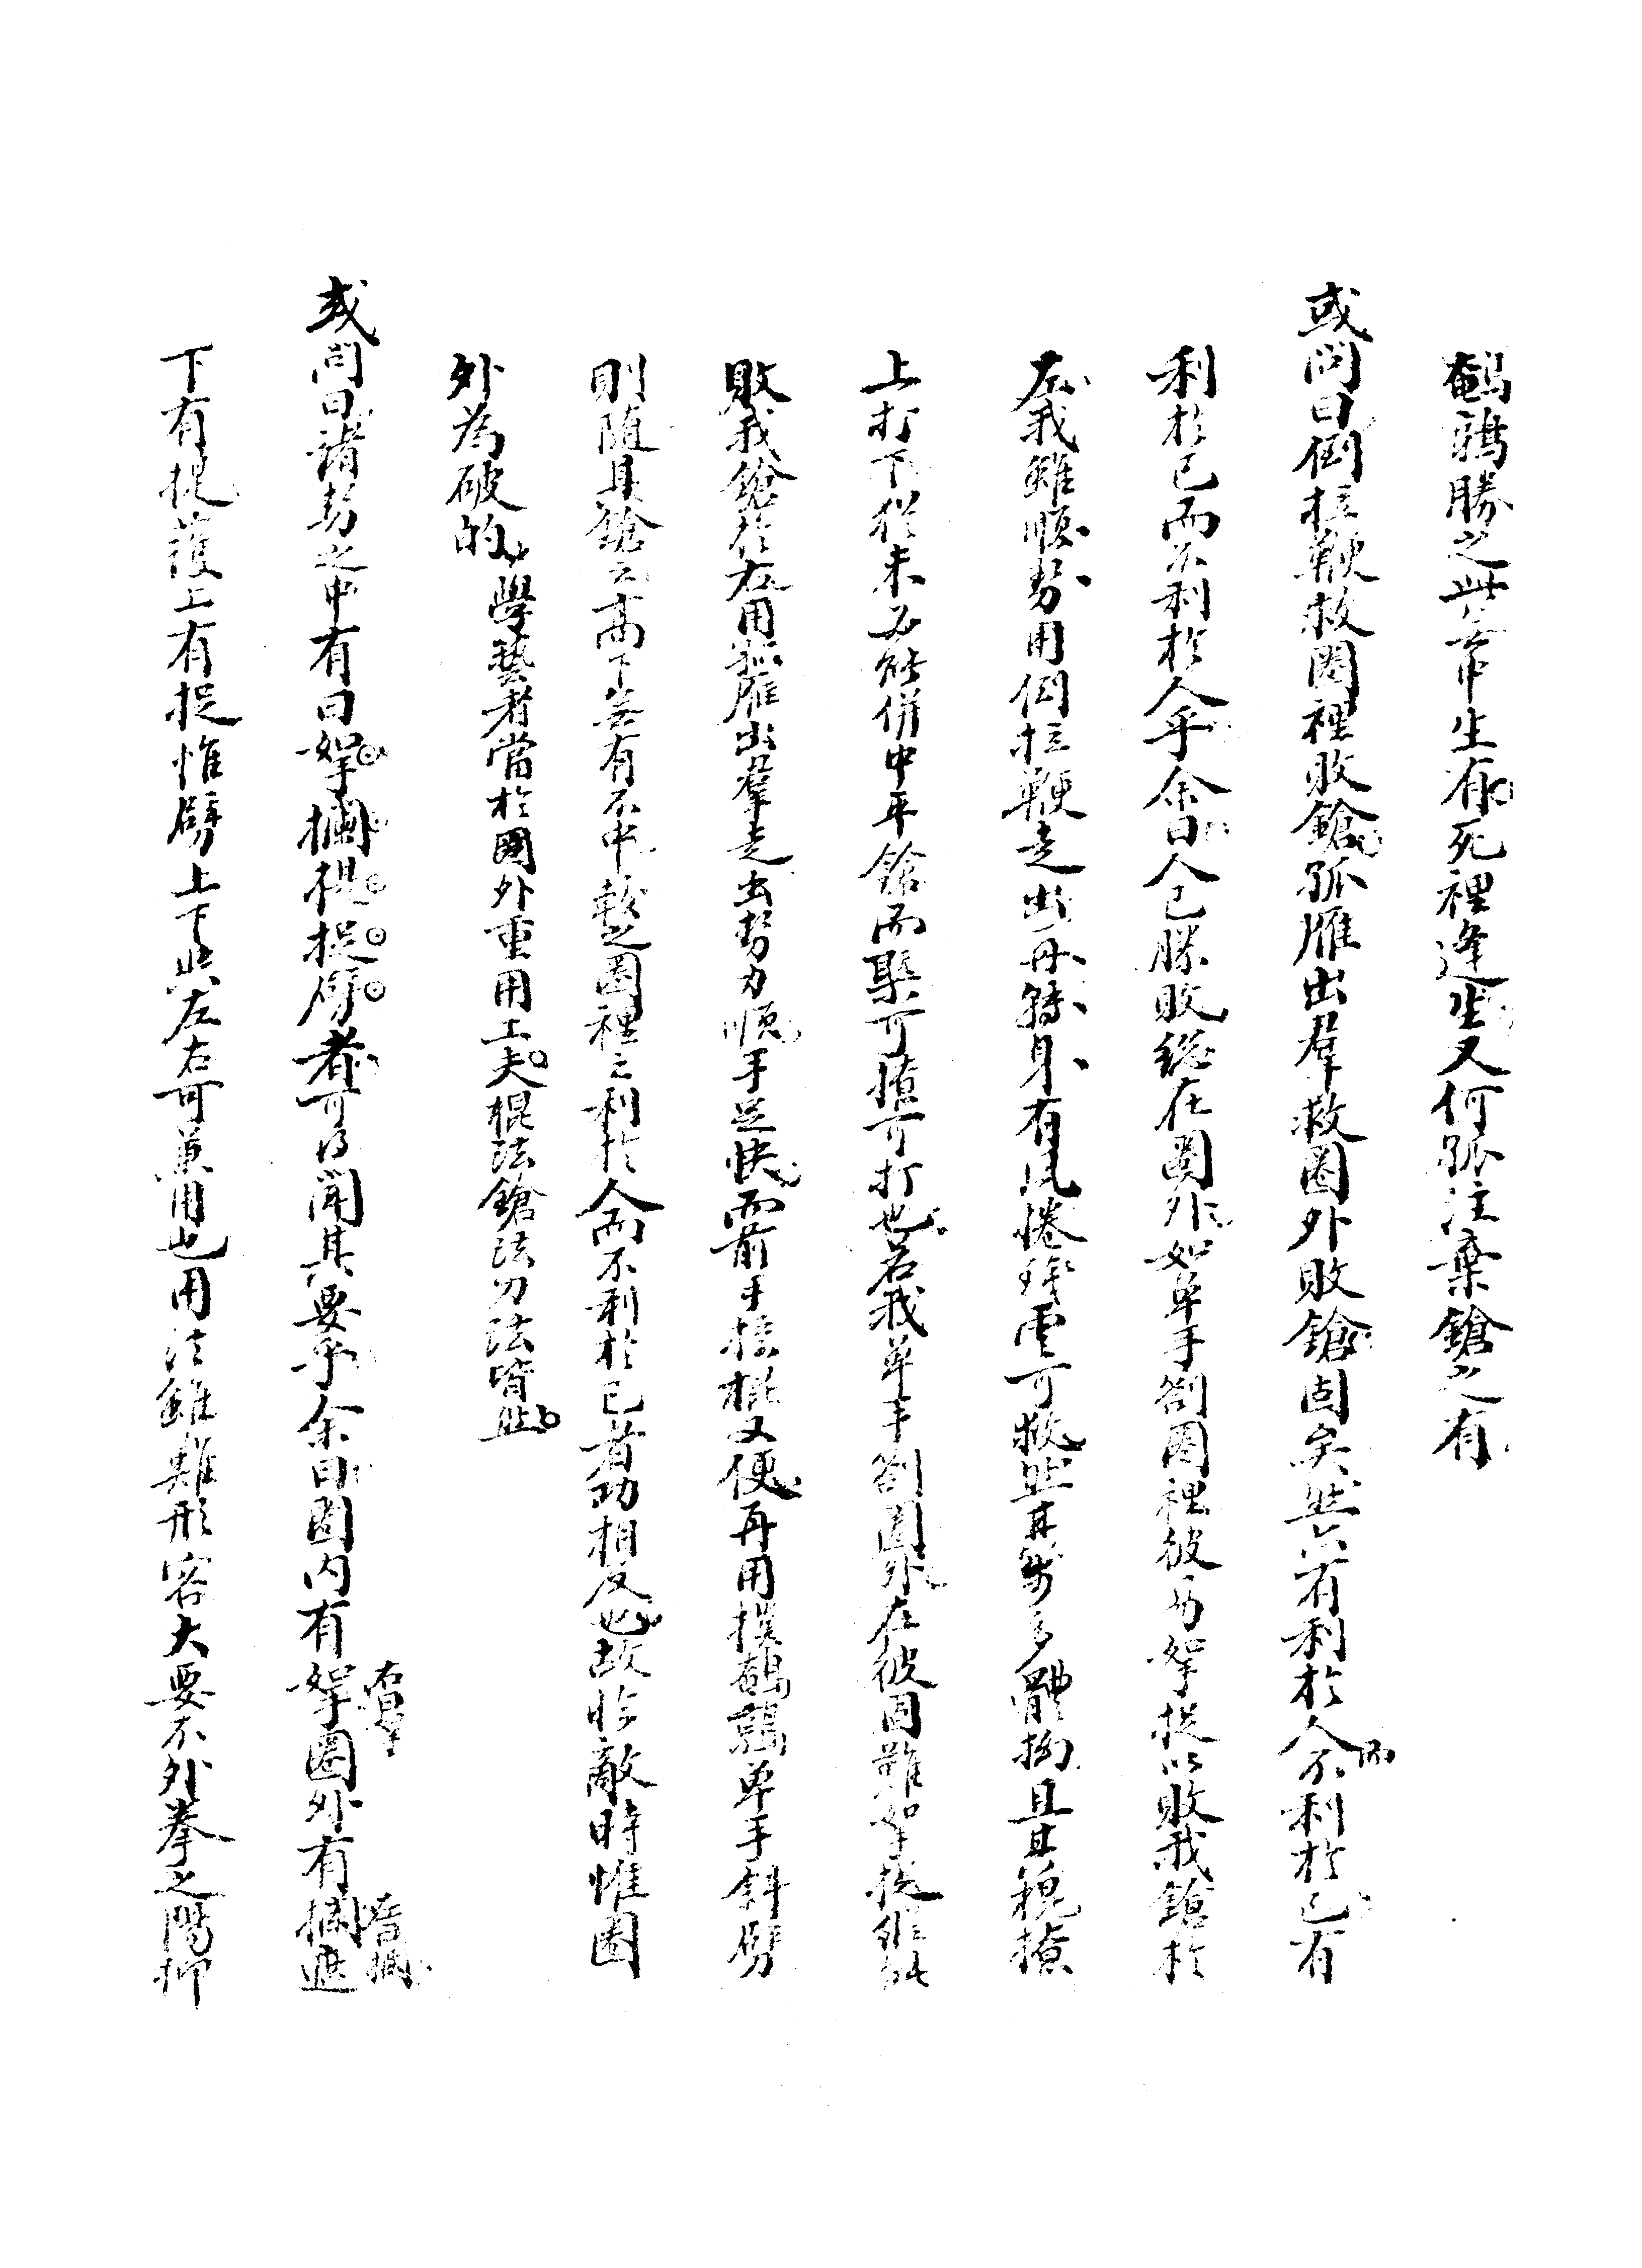 鵪鶉勝之此等中生有死裡逢生又何孤注棄鎗之有
或問曰倒拉鞭救圈裡敗鎗孤雁出羣救圈外敗鎗固矣然亦有利於人而不利於己有
利於己而不利於人乎余曰人己勝敗總在圈外如單手劄圈裡彼力拏捉以敗我鎗於
左我雖順勢用倒拉鞭走出再轉身有風捲殘雲可救然其步多體拗且其棍撩
上打下猶未必能併中平鎗而聚可撩可打也若我單手劄圈外在彼固難拏捉縱能
敗我鎗於右用孤雁出羣走出勢力順手足快而前手接棍又便再用撲鵪鶉單手斜劈
則隨其鎗之高下無有不中較之圈裡之利於人而不利於己者功相反也故臨敵時惟圈
外為破的
學藝者當於圈外重用工夫棍法鎗法刀法皆然
或問曰諸勢之中有曰拏攔提捉劈者可得聞其要乎余曰圈内有拏圈外有攔遮
下有提護上有捉惟劈上下與左右可兼用也用法雖難形容大要不外拳之陽抑